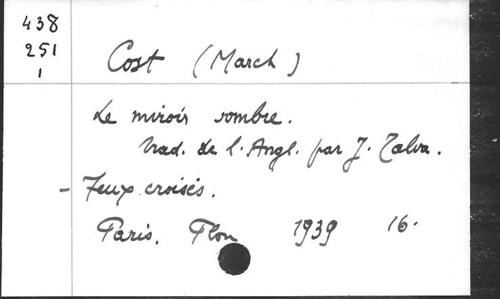 438
251
1
Cost (March)
Le miroir sombre.
trad. de l'Angl. par J. Talva.
- Feux croisés.
Paris. Plon 1939 16.